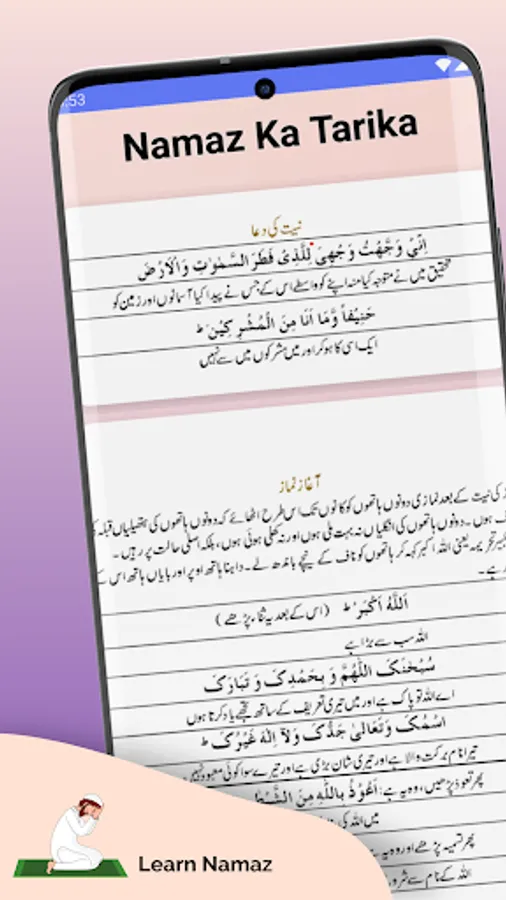 :53
Namaz Ka Tarika
نیت کی دعا
اِنِّیْ وَجَّهْتُ وَجْهِیَ لِلَّذِیْ فَطَرَ السَّمٰوٰتِ وَالْاَرْضَ
تحقیق میں نے متوجہ کیا منہ اپنے کو واسطے اس کے جس نے پیدا کیا آسمانوں اور زمین کو
حَنِیْفاً وَّمَا اَنَا مِنَ الْمُشْرِکِیْنَ ؕ
ایک اسی کا ہو کر اور میں مشرکوں میں سے نہیں
آغاز نماز
کی نیت کے بعد نمازی دونوں ہاتھوں کو کانوں تک اس طرح اٹھائے کہ دونوں ہاتھوں کی ہتھیلیاں قبلہ
ہوں۔ دونوں ہاتھوں کی انگلیاں نہ بہت ملی ہوں اور نہ کھلی ہوئی ہوں، بلکہ اصلی حالت پر رہیں۔
تحریمہ یعنی اللہ اکبر کہہ کر ہاتھوں کو ناف کے نیچے باندھ لے۔ داہنا ہاتھ اوپر اور بایاں ہاتھ اس کے
ہے۔
اَللّٰهُ اَکْبَرْ ؕ (اس کے بعد یہ ثناء پڑھے)
اللہ سب سے بڑا ہے
سُبْحٰنَکَ اللّٰهُمَّ وَ بِحَمْدِکَ وَ تَبَارَکَ
اے اللہ تو پاک ہے اور میں تیری تعریف کے ساتھ تجھے یاد کرتا ہوں
اسْمُکَ وَتَعَالیٰ جَدُّکَ وَلَآ اِلٰهَ غَیْرُکَ ؕ
تیرا نام برکت والا ہے اور تیری شان بڑی ہے اور تیرے سوا کوئی معبود نہیں
پھر تعوذ پڑھیں، وہ یہ ہے: اَعُوْذُ بِاللّٰهِ مِنَ
میں اللہ کی
پھر تسمیہ پڑھے اور وہ یہ
اللہ کے نام سے
Learn Namaz